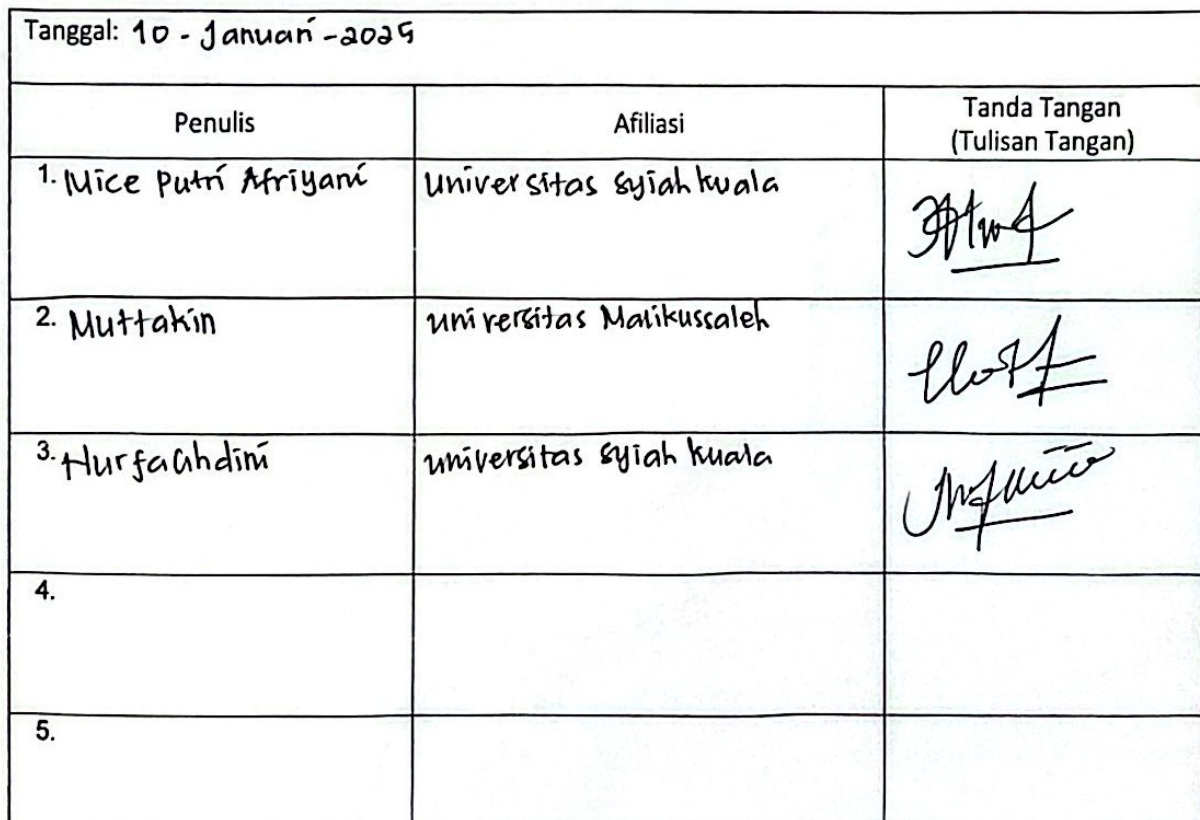 Tanggal: 10 - Januari - 2025
Penulis
Afiliasi
Tanda Tangan
(Tulisan Tangan)
1. Mice Putri Afriyani
Universitas Syiah kuala
2. Muttakin
universitas Malikussaleh
3.
universitas syiah kuala
4.
5.